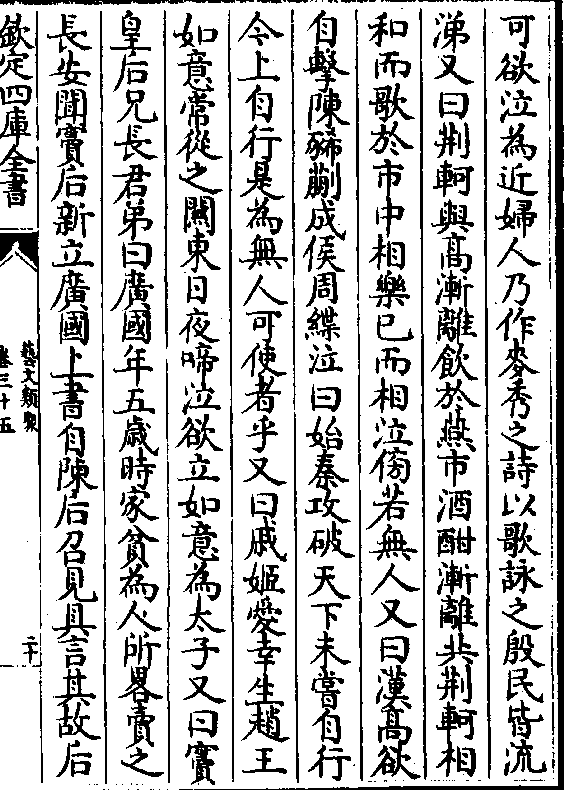 可欲泣為近婦人乃作麥秀之詩以歌詠之殷民皆流
涕又曰荆軻與髙漸離飲於燕市酒酣漸離共荆軻相
和而歌於市中相樂已而相泣傍若無人又曰漢髙欲
自擊陳豨蒯成侯周緤泣曰始秦攻破天下未嘗自行
今上自行是為無人可使者乎又曰戚姬愛幸生趙王
如意常從之闗東日夜啼泣欲立如意為太子又曰竇
皇后兄長君弟曰廣國年五歲時家貧為人所畧賣之
長安聞竇后新立廣國上書自陳后召見具言其故后
欽定四庫全書
藝文類聚
卷三十五
二十